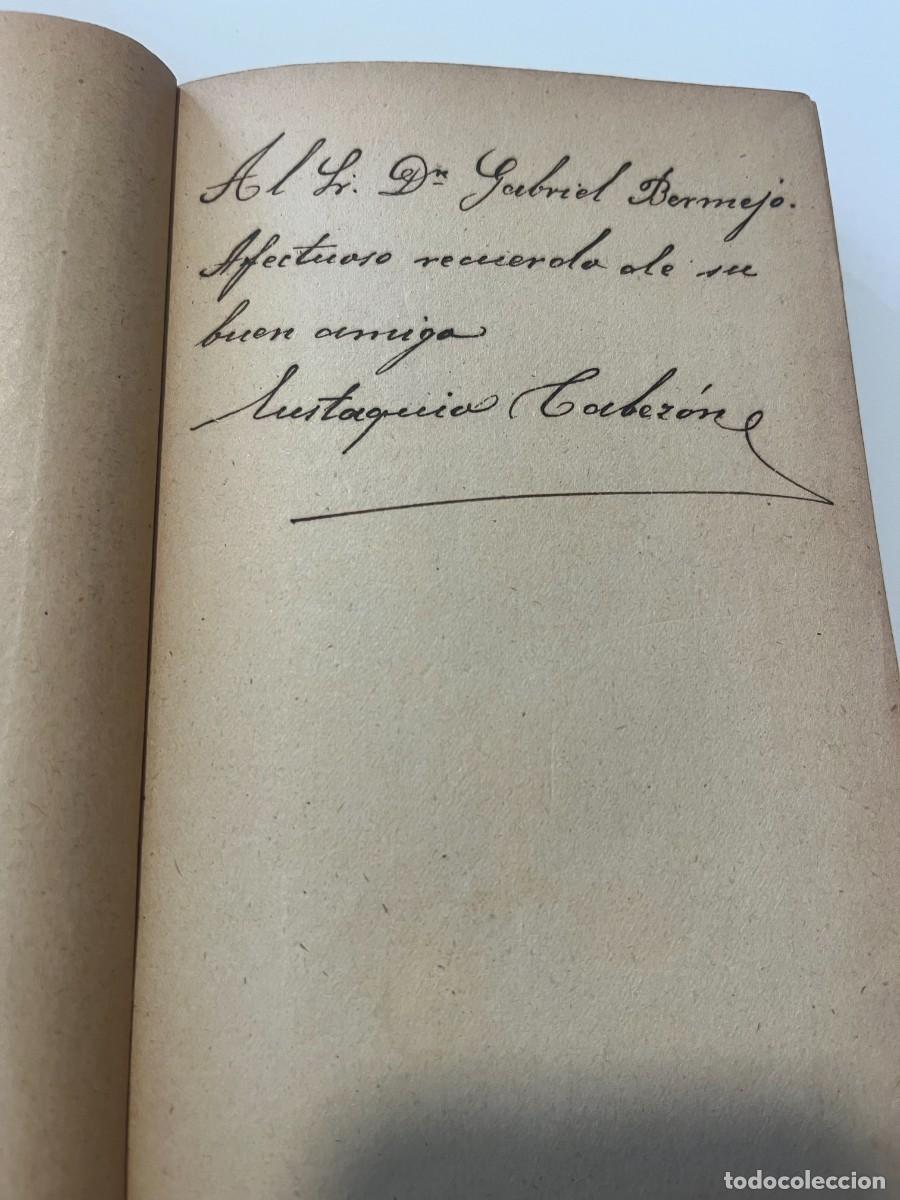 Al Sr. Dn Gabriel Bermejo.
Afectuoso recuerdo de su
buen amigo
Eustaquio Cabezón
todocoleccion